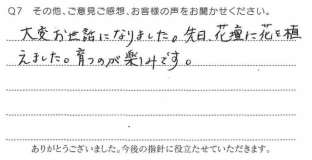 Q7 その他、ご意見ご感想、お客様の声をお聞かせください。
大変お世話になりました。先日、花壇に花を植
えました。育つのが楽しみです。
ありがとうございました。今後の指針に役立たせていただきます。